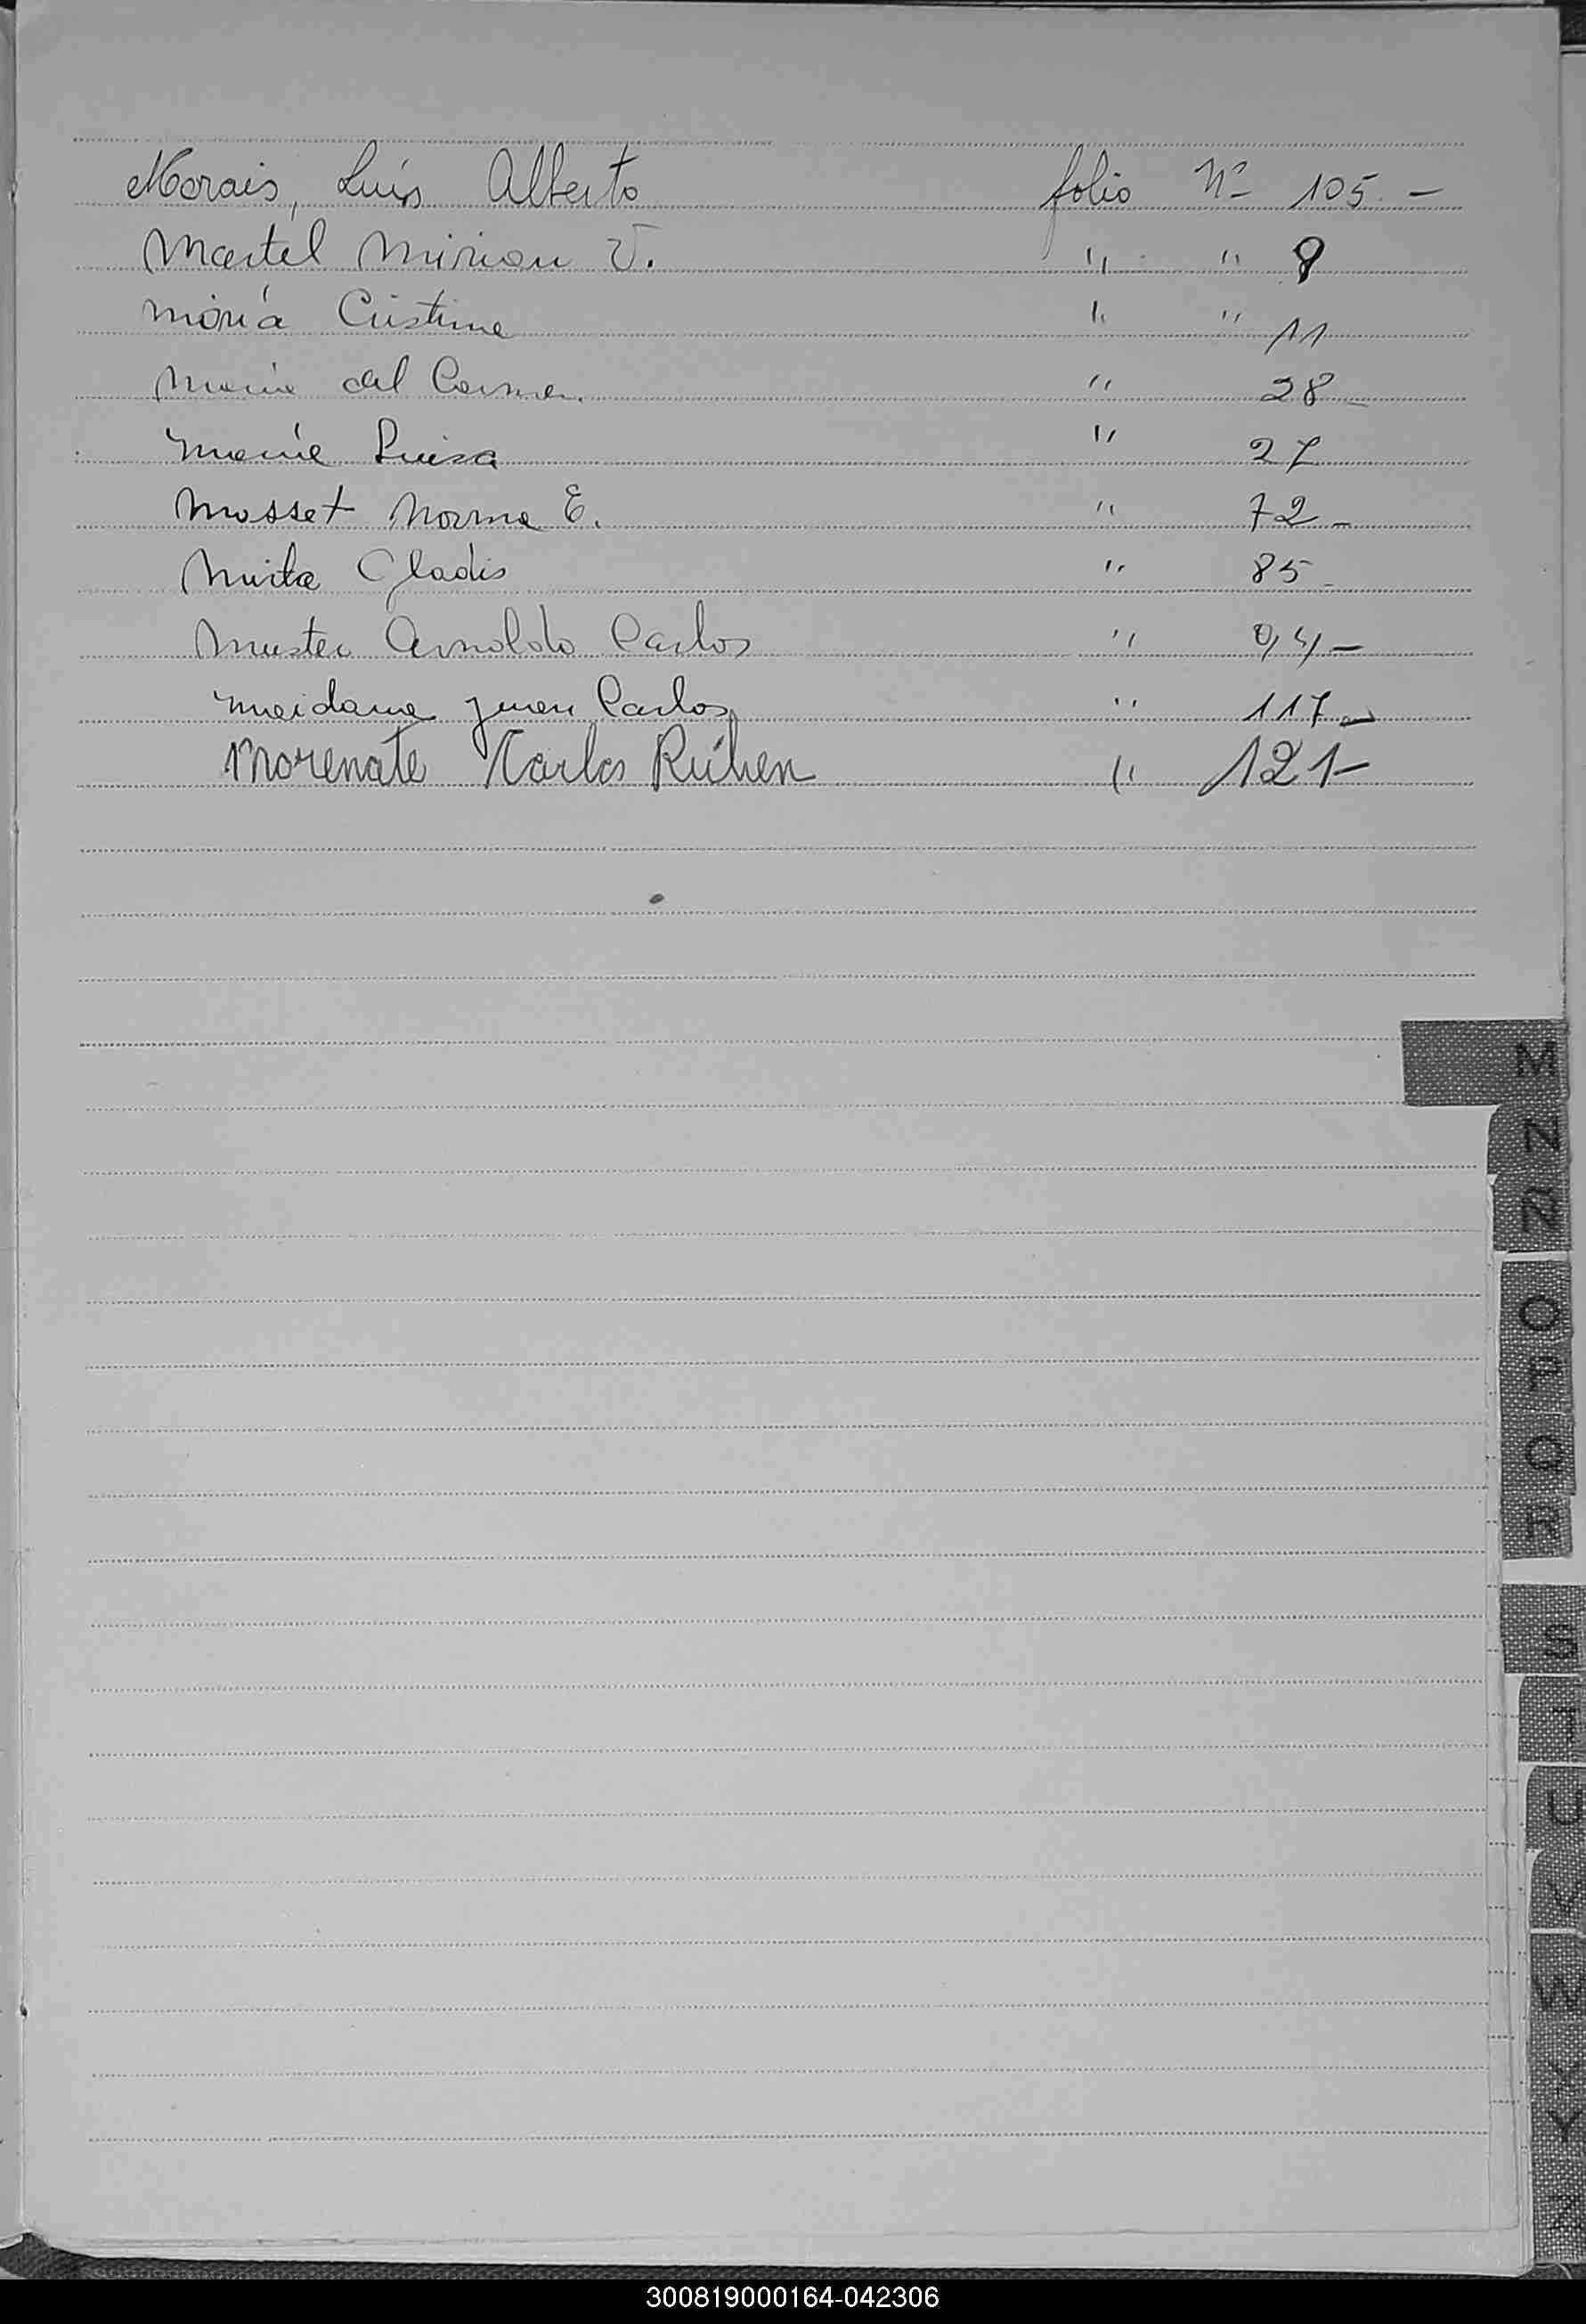 Morais, Luis Alberto folio Nº 105.-
Martel Mirian V. " " 8
María Cristina " " 11
Maria del Carmen. " 28-
María Luisa " 27
Mosset Norma E. " 72-
Mirta Gladis " 85-
Muster Arnoldo Carlos " 94-
Maidana Juan Carlos " 117-
Morenate Karlos Rúben " 121-
M
N
Ñ
O
P
Q
R
S
T
U
V
W
X
Y
Z
300819000164-042306